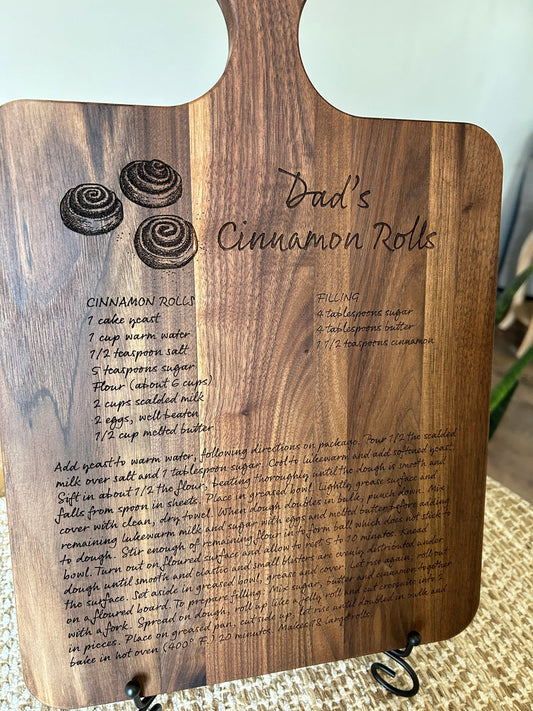 Dad's
Cinnamon Rolls
CINNAMON ROLLS
1 cake yeast
1 cup warm water
1/2 teaspoon salt
5 teaspoons sugar
Flour (about 6 cups)
2 cups scalded milk
2 eggs, well beaten
1/2 cup melted butter
FILLING
4 tablespoons sugar
4 tablespoons butter
1 1/2 teaspoons cinnamon
Add yeast to warm water, following directions on package. Pour 1/2 the scalded
milk over salt and 1 tablespoon sugar. Cool to lukewarm and add softened yeast.
Sift in about 1/2 the flour, beating thoroughly until the dough is smooth and
falls from spoon in sheets. Place in greased bowl. Lightly grease surface and
cover with clean, dry towel. When dough doubles in bulk, punch down. Mix
remaining lukewarm milk and sugar with eggs and melted butter before adding
to dough. Stir enough of remaining flour in to form ball which does not stick to
bowl. Turn out on floured surface and allow to rest 5 to 10 minutes. Knead
dough until smooth and elastic and small blisters are evenly distributed under
the surface. Set aside in greased bowl, grease and cover. Let rise again, roll out
on a floured board. To prepare filling: Mix sugar, butter and cinnamon together
with a fork. Spread on dough, roll up like a jelly roll and cut crosswise into 2
in pieces. Place on greased pan, cut side up. Let rise until doubled in bulk and
bake in hot oven (400° F.) 20 minutes. Makes 18 large rolls.